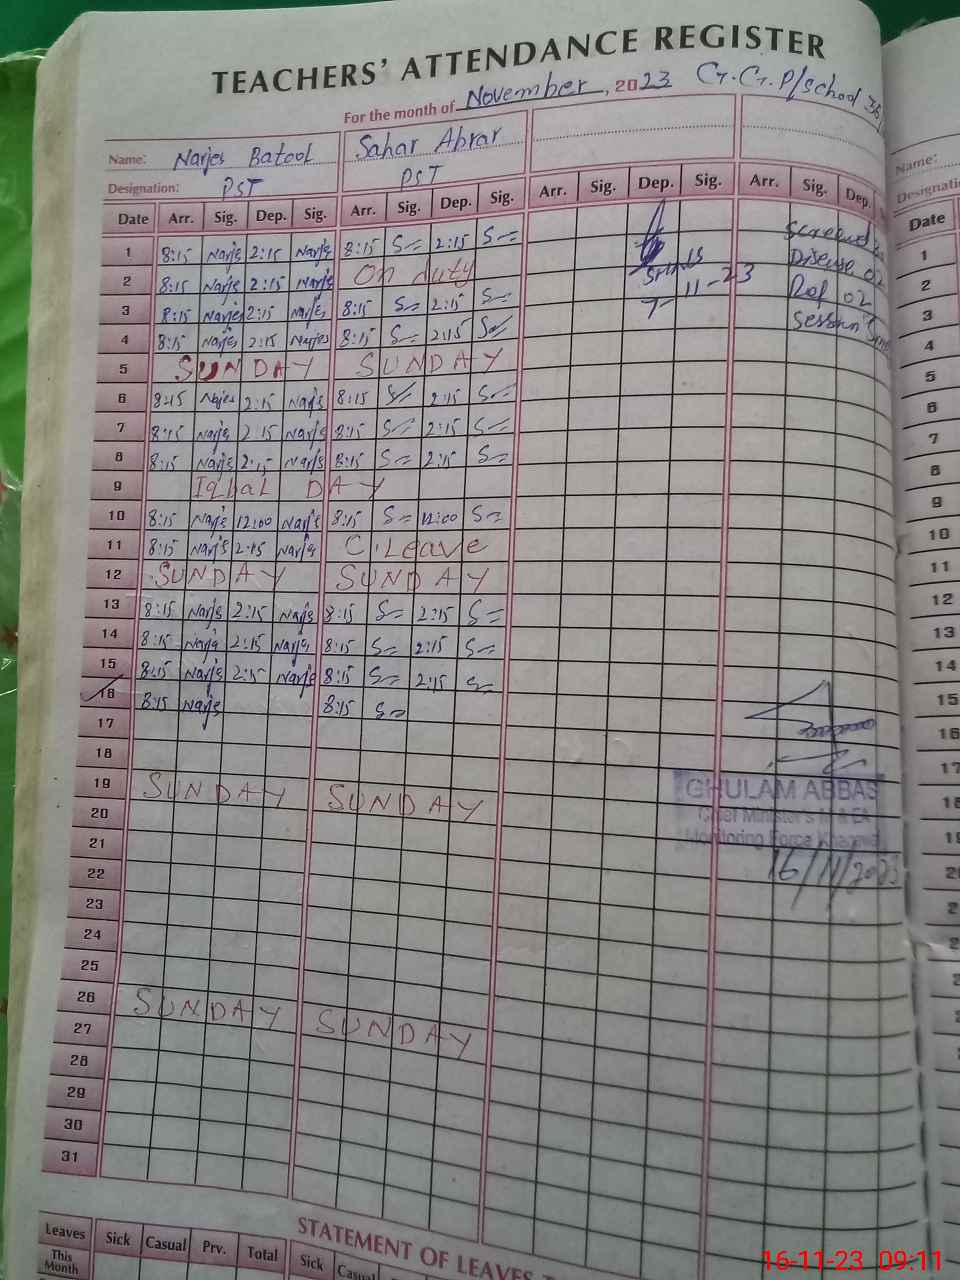 TEACHERS' ATTENDANCE REGISTER
For the month of November, 2023 G.G.P/School 36
Name: Narjes Batool Sahar Abrar
Designation: PST PST
Date Arr. Sig. Dep. Sig. Arr. Sig. Dep. Sig. Arr. Sig. Dep. Sig. Arr. Sig. Dep.
1 8:15 Narjs 2:15 Narjs 8:15 S 2:15 S
2 8:15 Narjs 2:15 Narjs On duty
3 8:15 Narjes 2:15 Narjes 8:15 S 2:15 S
4 8:15 Narjes 2:15 Narjes 8:15 S 2:15 S
5 SUNDAY SUNDAY
6 8:15 Narjes 2:15 Narjs 8:15 S 2:15 S
7 8:15 Narjs 2:15 Narjs 8:15 S 2:15 S
8 8:15 Narjs 2:15 Narjs 8:15 S 2:15 S
9 Iqbal DAY
10 8:15 Narjs 12:00 Narjs 8:15 S 12:00 S
11 8:15 Narjs 2:15 Narjs C.Leave
12 SUNDAY SUNDAY
13 8:15 Narjs 2:15 Narjs 8:15 S 2:15 S
14 8:15 Narjs 2:15 Narjs 8:15 S 2:15 S
15 8:15 Narjs 2:15 Narjs 8:15 S 2:15 S
16 8:15 Narjs 8:15 S
17
18
19 SUNDAY SUNDAY
20
21
22
23
24
25
26 SUNDAY SUNDAY
27
28
29
30
31
7-11-23
Disease 02
Ref 02
Session
GHULAM ABBAS
Chief Minister's M & EA
Monitoring Force Khanewal
16/11/2023
STATEMENT OF LEAVES
Leaves Sick Casual Prv. Total Sick Casual
This Month
Name:
Designation
Date
1
2
3
4
5
6
7
8
9
10
11
12
13
14
15
16
17
16-11-23 09:11